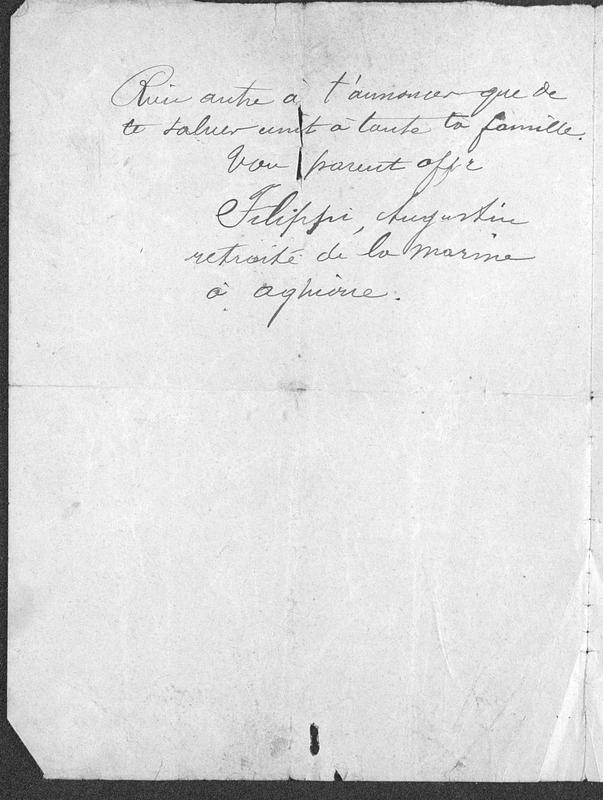 Rien autre à t'annoncer que de
te saluer unit à toute ta famille.
Von parent affr
Filippi, Augustin
retraité de la marine
à aghione.